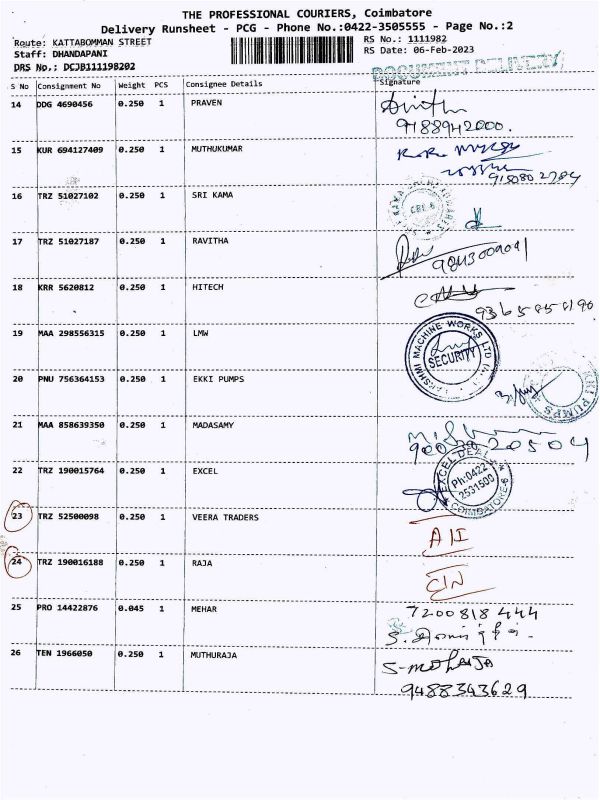 THE PROFESSIONAL COURIERS, Coimbatore
Delivery Runsheet - PCG - Phone No.:0422-3505555 - Page No.:2
Route: KATTABOMMAN STREET
RS No.: 1111982
Staff: DHANDAPANI
RS Date: 06-Feb-2023
DRS No.: DCJB1111198202
DOCUMENT DELIVERY
S No Consignment No Weight PCS Consignee Details Signature
14 DDG 4690456 0.250 1 PRAVEN
9188942000.
15 KUR 694127409 0.250 1 MUTHUKUMAR
16 TRZ 51027102 0.250 1 SRI KAMA
17 TRZ 51027187 0.250 1 RAVITHA
18 KRR 5620812 0.250 1 HITECH
19 MAA 298556315 0.250 1 LMW
LAKSHMI MACHINE WORKS LTD
SECURITY
20 PNU 756364153 0.250 1 EKKI PUMPS
PUMPS
21 MAA 858639350 0.250 1 MADASAMY
9003020504
22 TRZ 190015764 0.250 1 EXCEL
EXCEL DEAL
Ph:0422
2531500
COIMBATORE-6
23 TRZ 52500098 0.250 1 VEERA TRADERS
24 TRZ 190016188 0.250 1 RAJA
25 PRO 14422876 0.045 1 MEHAR
7200818444
26 TEN 1966050 0.250 1 MUTHURAJA
9488343629